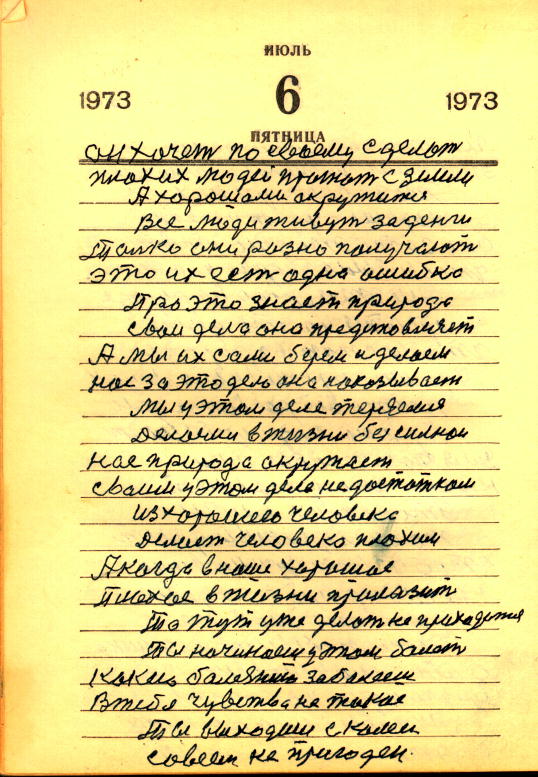 ИЮЛЬ
1973 6 1973
ПЯТНИЦА
он хочет по своему сделат
плохих людей прогнат с земли
А хорошоми окружится
Все люди живут за денги
Толко они розно получают
это их ест одна ошибко
Про это знает природа
свои дела она предтовляет
А мы их сами берем и делаем
нас за это дело она наказывает
мы у этом деле терпения
делаеми в жизни бессилной
нас природа окружает
своим у этом дела недостотком
из хорошего человека
делает человека плохим
А когда в наше хорошое
Плохое в жизни прилазит
То тут уже делат не приходится
Ты начинаеш у этом болет
Какию болезнию заболееш
В тебя чувства не такое
Ты выходиш с колеи
совсем не пригоден.